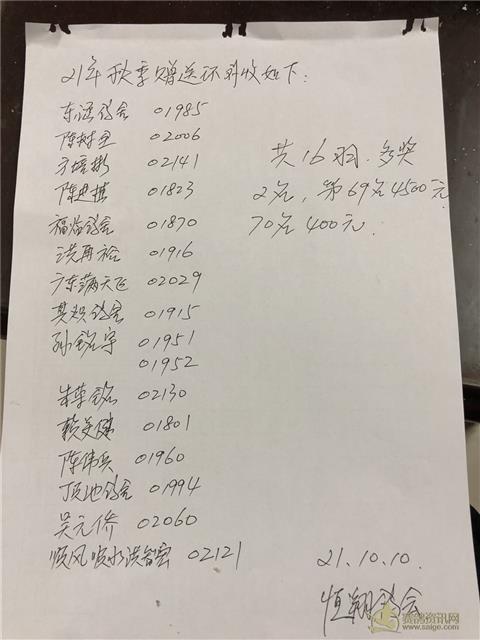 21年秋季赠送环回收如下:
东涵鸽舍 01985
陈树全 02006
方培彬 02141
陈进棋 01823
福灿鸽舍 01870
洪再裕 01916
广东满天飞 02029
01915
孙铭宇 01951
01952
朱荣铭 02130
赖美健 01801
陈伟兵 01960
顶地鸽舍 01994
吴元侨 02060
顺风顺水洪智宏 02121
共16羽,多奖
2名,第69名4500元
70名400元.
21.10.10.
恒翔鸽舍
赛鸽资讯网
www.saige.com